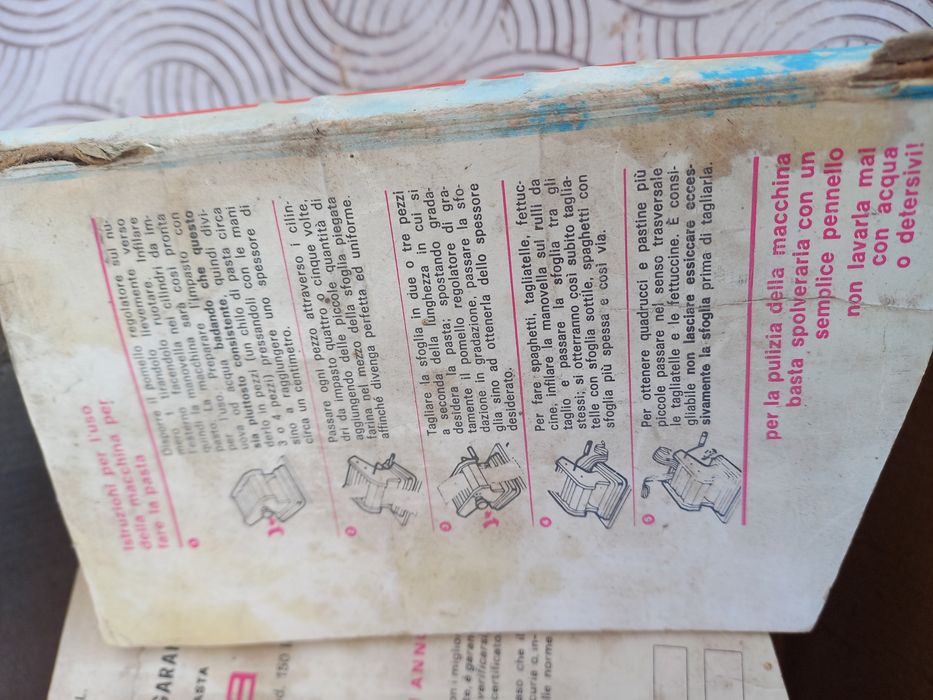 Istruzioni per l'uso
della macchina per
fare la pasta
Disporre il pomello regolatore sul nu-
mero tirandolo lievemente verso
l'esterno e facendo ruotare. Infilare
quindi la manovella nei cilindri da im-
pasto. La macchina sarà così pronta
per l'uso. Preparare l'impasto con
uova od acqua badando che questo
sia piuttosto consistente, quindi divi-
derlo in pezzi (un chilo di pasta circa
3 o 4 pezzi) pressandoli con le mani
sino a raggiungere uno spessore di
circa un centimetro.
Passare ogni pezzo attraverso i cilin-
dri da impasto quattro o cinque volte,
aggiungendo delle piccole quantità di
farina nel mezzo della sfoglia piegata
affinché divenga perfetta ed uniforme.
Tagliare la sfoglia in due o tre pezzi
a seconda della lunghezza in cui si
desidera la pasta; spostando grada-
tamente il pomello regolatore di gra-
dazione in gradazione, passare la sfo-
glia sino ad ottenerla dello spessore
desiderato.
Per fare: spaghetti, tagliatelle, fettuc-
cine, infilare la manovella sul rulli da
taglio e passare la sfoglia tra gli
stessi; si otterranno così subito taglia-
telle con sfoglia sottile, spaghetti con
sfoglia più spessa e così via.
Per ottenere quadrucci e pastine più
piccole passare nel senso trasversale
le tagliatelle e le fettuccine. È consi-
gliabile non lasciare essiccare ecces-
sivamente la sfoglia prima di tagliarla.
per la pulizia della macchina
basta spolverarla con un
semplice pennello
non lavarla mai
con acqua
o detersivi!
GARAN
ASTA
d. 150
ANNO
n i miglior
verificarsi
certificato
aso che il
curia o in-
lle norme